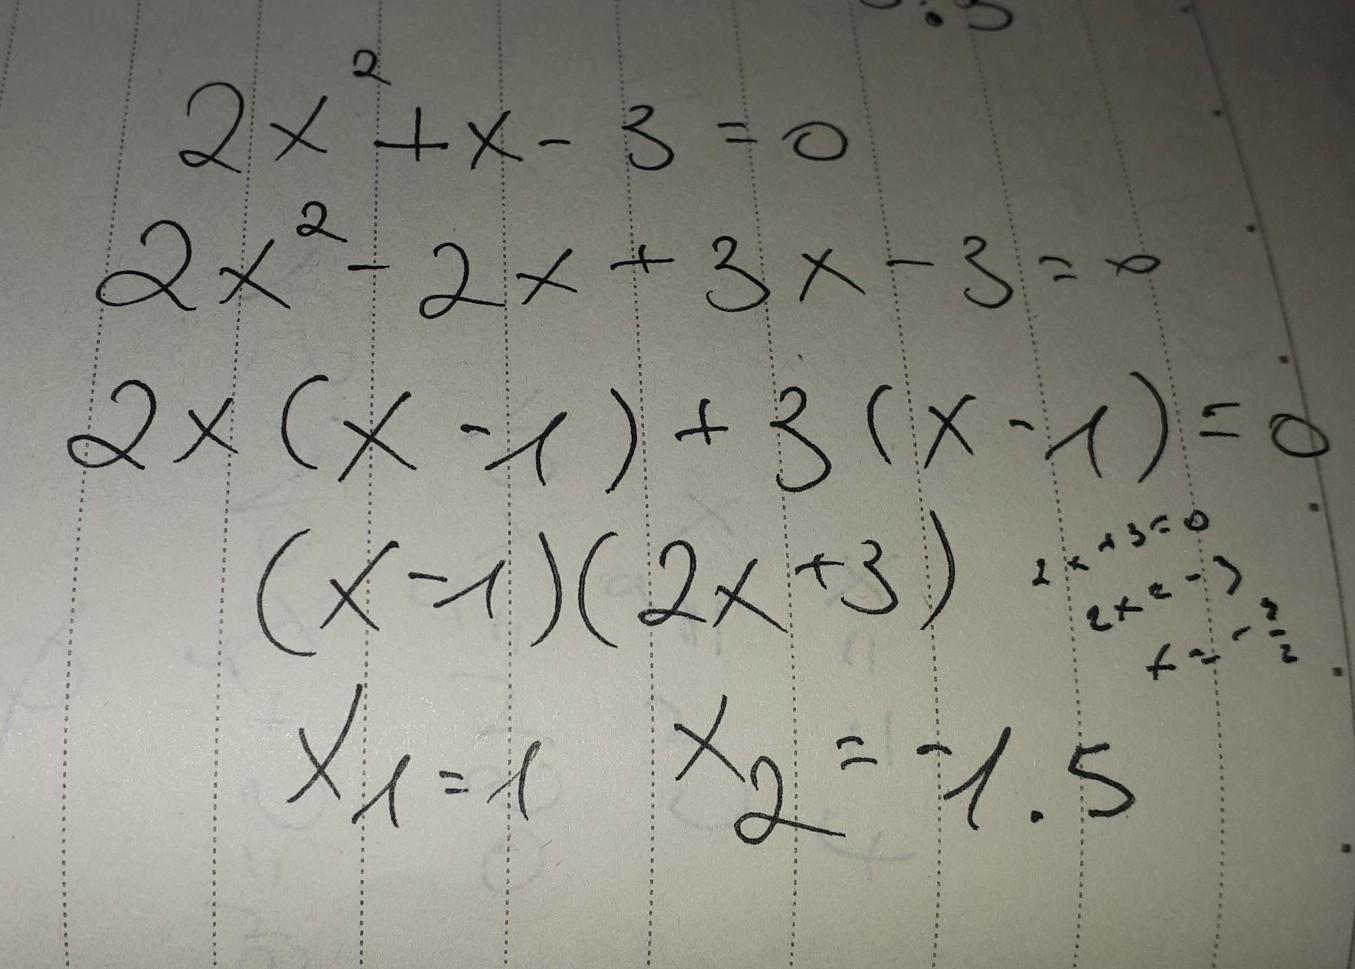 2x² + x - 3 = 0
2x² - 2x + 3x - 3 = 0
2x (x - 1) + 3 (x - 1) = 0
(x - 1)(2x + 3)
2x + 3 = 0
2x = -3
x = -3/2
x₁ = 1 x₂ = -1.5